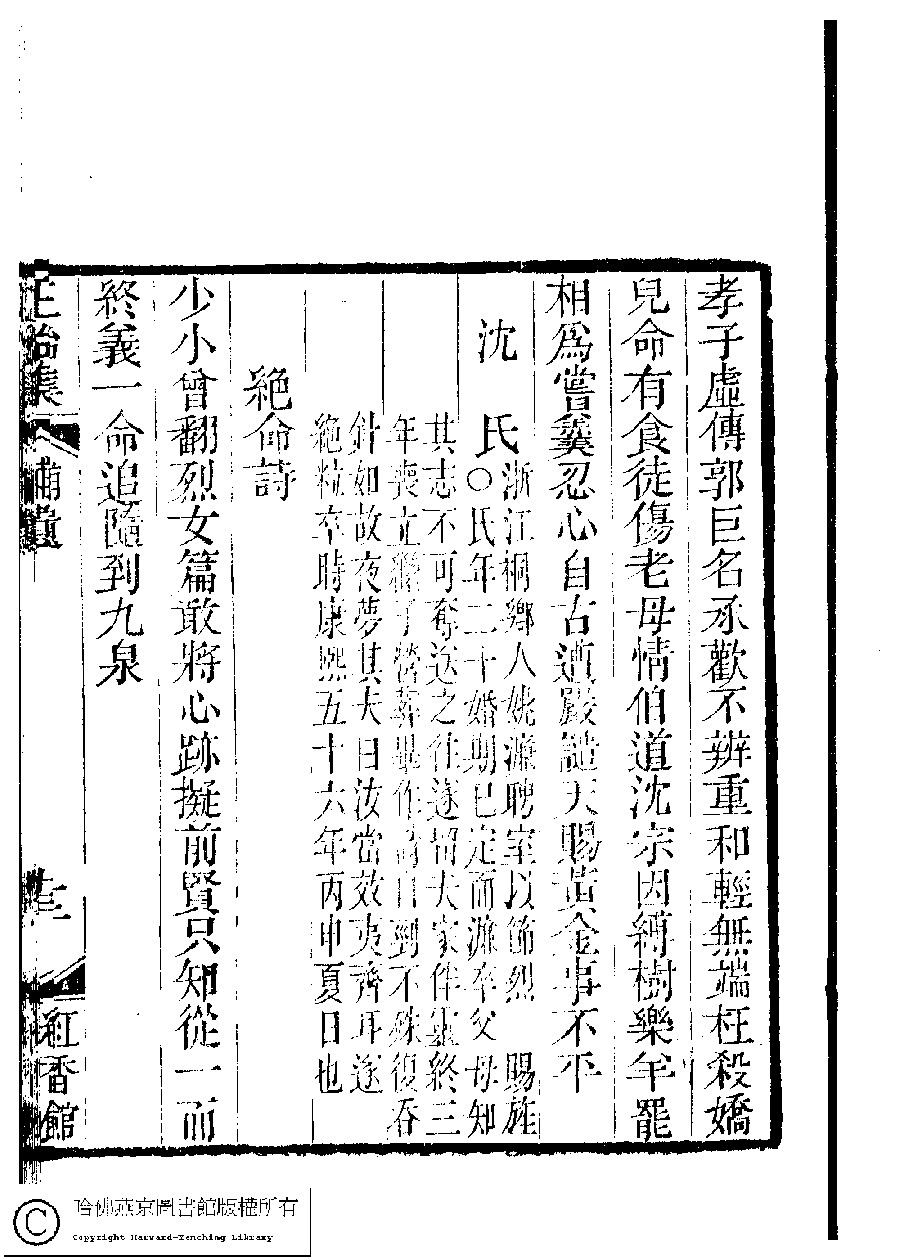 孝子虛傳郭巨名承歡不辨重和輕無端枉殺嬌
兒命有食徒傷老母情伯道沈宗因縛樹樂羊罷
相爲嘗羹忍心自古遭嚴譴天賜黃金事不平
沈 氏
浙江桐鄉人姚濂聘室以節烈 賜旌
○氏年二十婚期已定而濂卒父母知
其志不可奪送之往遂留夫家伴靈終三
年喪立繼子營葬畢作詩自到不殊復吞
針如故夜夢其夫曰汝當效夷齊耳遂
絶粒卒時康熙五十六年丙申夏日也
絶命詩
少小曾翻烈女篇敢將心跡擬前賢只知從一而
終義一命追隨到九泉
正始集 補遺 紅香館
哈佛燕京圖書館版權所有
Copyright Harvard-Yenching Library